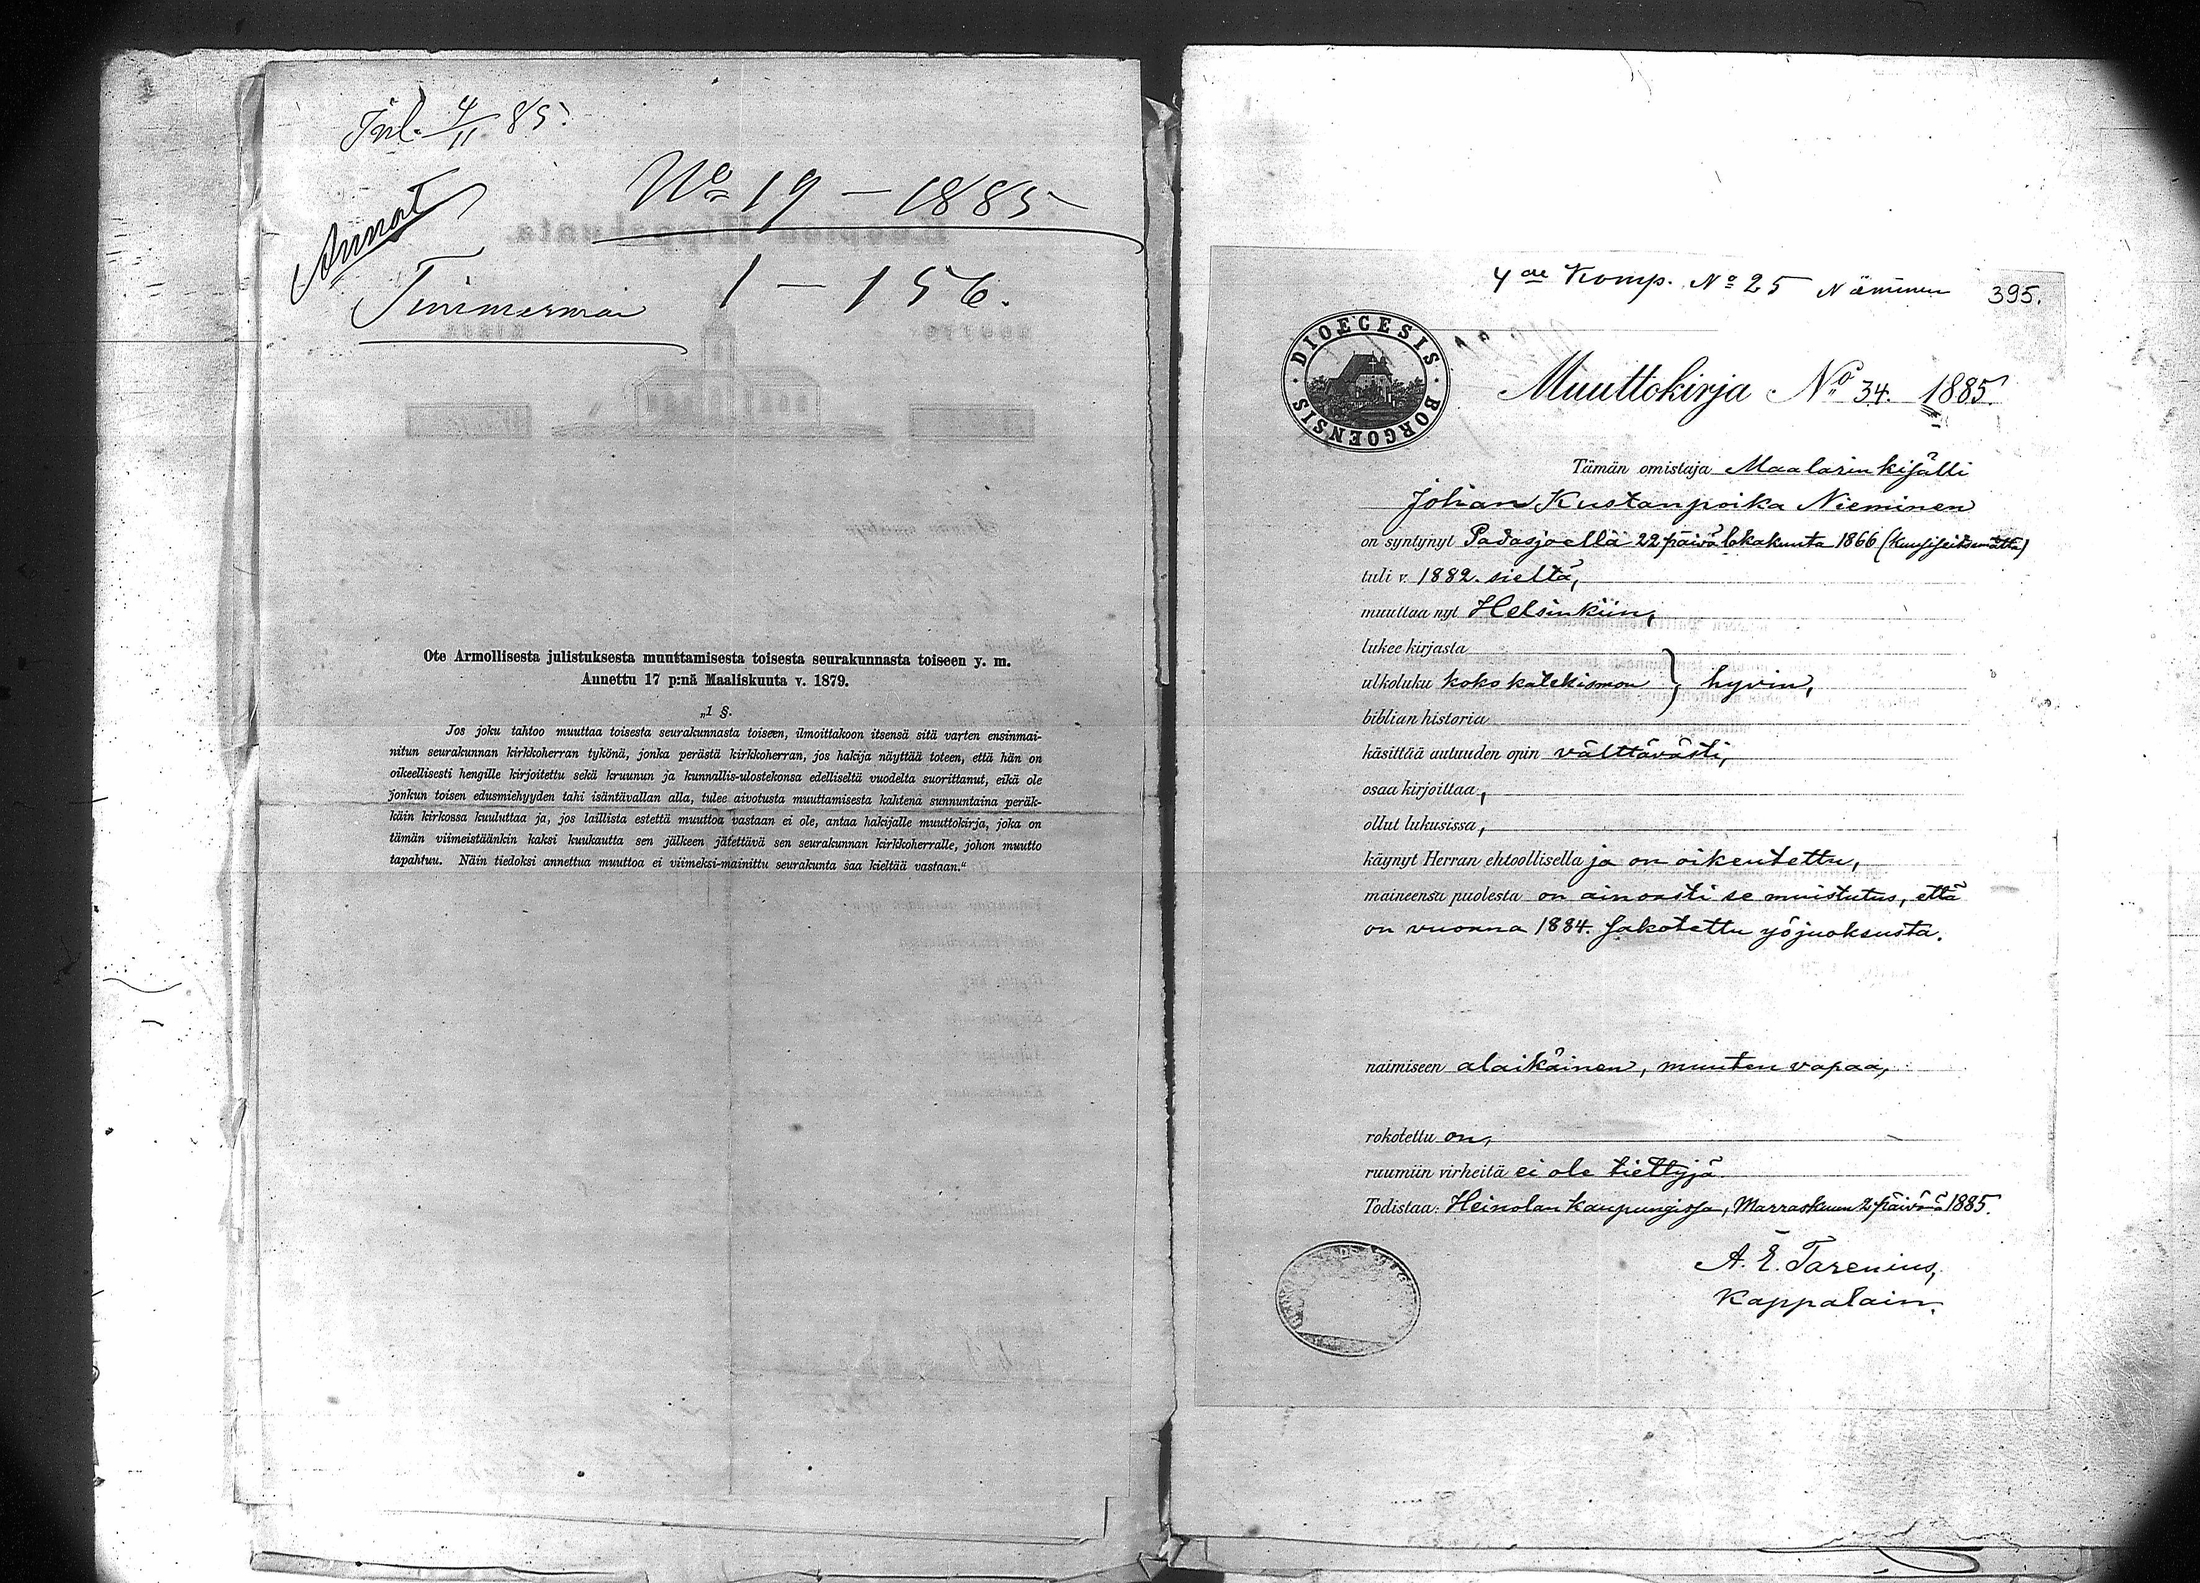 Inl. 4/11 85.
No 19 – 1885
Annat
Timmerman 1 – 156.
Ote Armollisesta julistuksesta muuttamisesta toisesta seurakunnasta toiseen y. m.
Annettu 17 p:nä Maaliskuuta v. 1879.
„1 §.
Jos joku tahtoo muuttaa toisesta seurakunnasta toiseen, ilmoittakoon itsensä sitä varten ensinmai-
nitun seurakunnan kirkkoherran tykönä, jonka perästä kirkkoherran, jos hakija näyttää toteen, että hän on
oikeellisesti hengille kirjoitettu sekä kruunun ja kunnallis-ulostekonsa edelliseltä vuodelta suorittanut, eikä ole
jonkun toisen edusmiehyyden tahi isäntävallan alla, tulee aivotusta muuttamisesta kahtena sunnuntaina peräk-
käin kirkossa kuuluttaa ja, jos laillista estettä muuttoa vastaan ei ole, antaa hakijalle muuttokirja, joka on
tämän viimeistäänkin kaksi kuukautta sen jälkeen jätettävä sen seurakunnan kirkkoherralle, johon muutto
tapahtuu. Näin tiedoksi annettua muuttoa ei viimeksi-mainittu seurakunta saa kieltää vastaan.“
4de Komp. No 25 395.
DIOECESIS BORGOENSIS
Muuttokirja No 34. 1885.
Tämän omistaja Maalarinkisälli
Johan Kustanpoika Nieminen
on syntynyt Padasjoella 22 päivä lokakuuta 1866 (kuusiseitsemättä)
tuli v. 1882. sieltä,
muuttaa nyt Helsinkiin,
lukee kirjasta
ulkoluku koko katekismon } hyvin,
biblian historia
käsittää autuuden opin välttävästi,
osaa kirjoittaa,
ollut lukusissa,
käynyt Herran ehtoollisella ja on oikeutettu,
maineensa puolesta on ainoasti se muistutus, että
on vuonna 1884. sakotettu yöjuoksusta.
naimiseen alaikäinen, muuten vapaa,
rokotettu on,
ruumiin virheitä ei ole tiettyjä
Todistaa: Heinolan kaupungissa, Marraskuun 2 päivänä 1885.
A. E. Tarenius,
Kappalain.